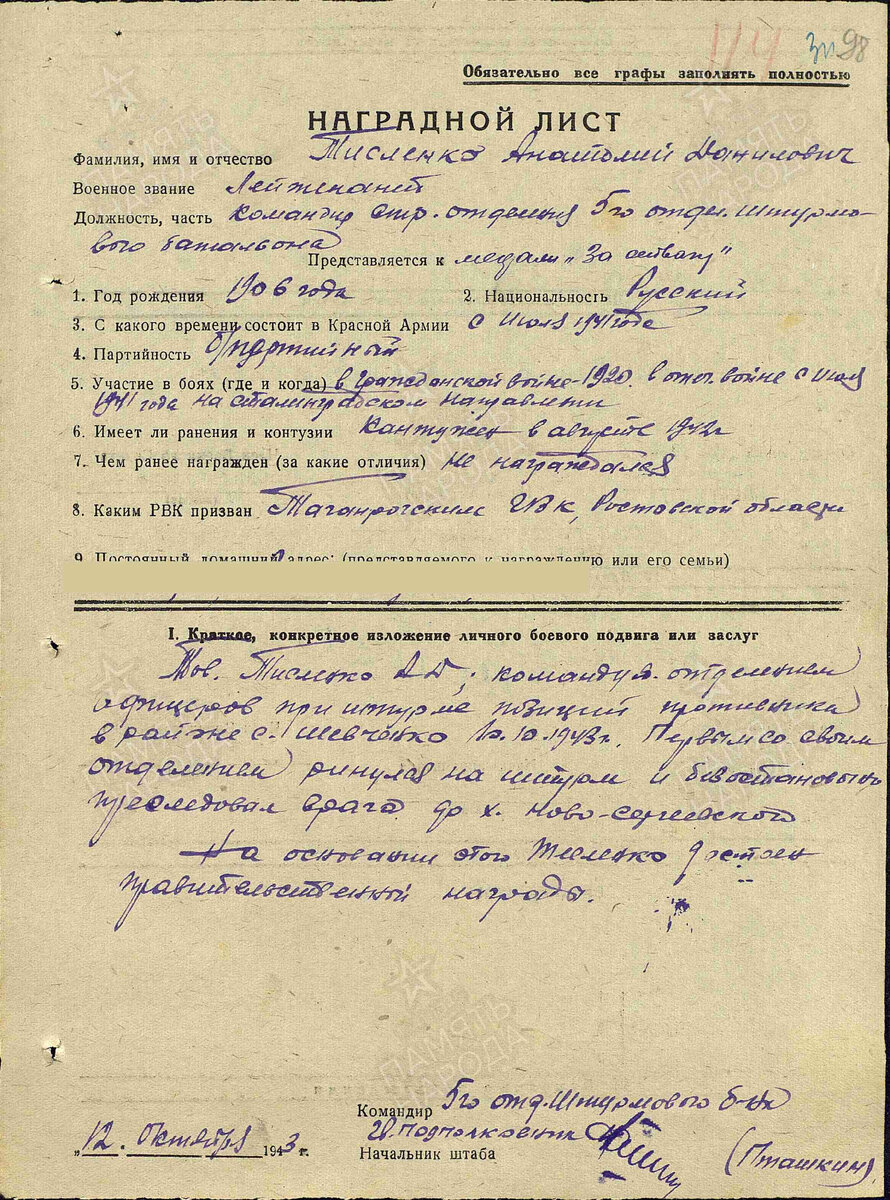 114 Зп 98
Обязательно все графы заполнять полностью
НАГРАДНОЙ ЛИСТ
Фамилия, имя и отчество Тисленко Анатолий Данилович
Военное звание Лейтенант
Должность, часть Командир стр. отделения 5го отдел. штурмо-
вого батальона
Представляется к медали „За отвагу"
1. Год рождения 1906 года 2. Национальность Русский
3. С какого времени состоит в Красной Армии с Июля 1941 года
4. Партийность б/партийный
5. Участие в боях (где и когда) в Гражданской войне-1920. в отеч. войне с Июля
1941 года на сталинградском направлении
6. Имеет ли ранения и контузии Контужен в августе 1942г
7. Чем ранее награжден (за какие отличия) не награждался
8. Каким РВК призван Таганрогским ГВК, Ростовской области
9. Постоянный домашний адрес: (представляемого к награждению или его семьи)
I. Краткое, конкретное изложение личного боевого подвига или заслуг
Тов. Тисленко А Д; командуя отделением
офицеров при штурме позиций противника
в районе с. Шевченко 10.10.1943г. Первым со своим
отделением ринулся на штурм и безостановочно
преследовал врага до х. Ново-сергиевского
На основании этого Тисленко достоин
правительственной награды.
Командир 5го отд. Штурмового б-на
Гв. подполковник
„12. Октября 1943 г. Начальник штаба (Пташкин)
ПАМЯТЬ НАРОДА